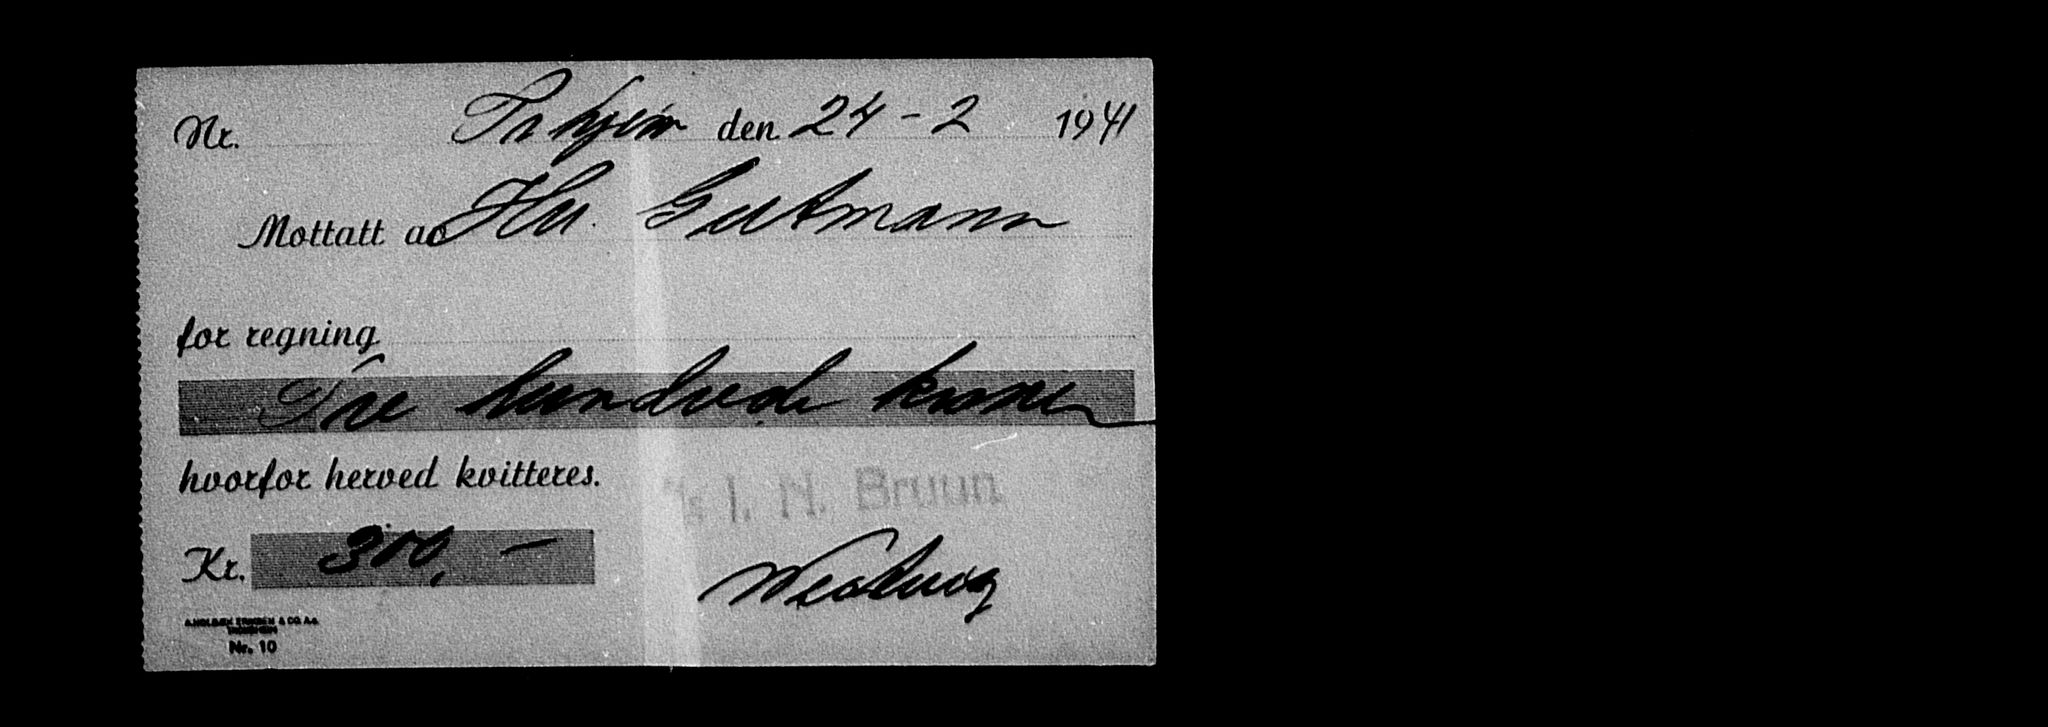 Nr. Trhjem den 24 - 2 1941
Mottatt av Hr. Gutmann
for regning
Tre hundrede kroner
hvorfor herved kvitteres.
I. N. Bruun
Kr. 300, -
& CO. A.s.
Nr. 10